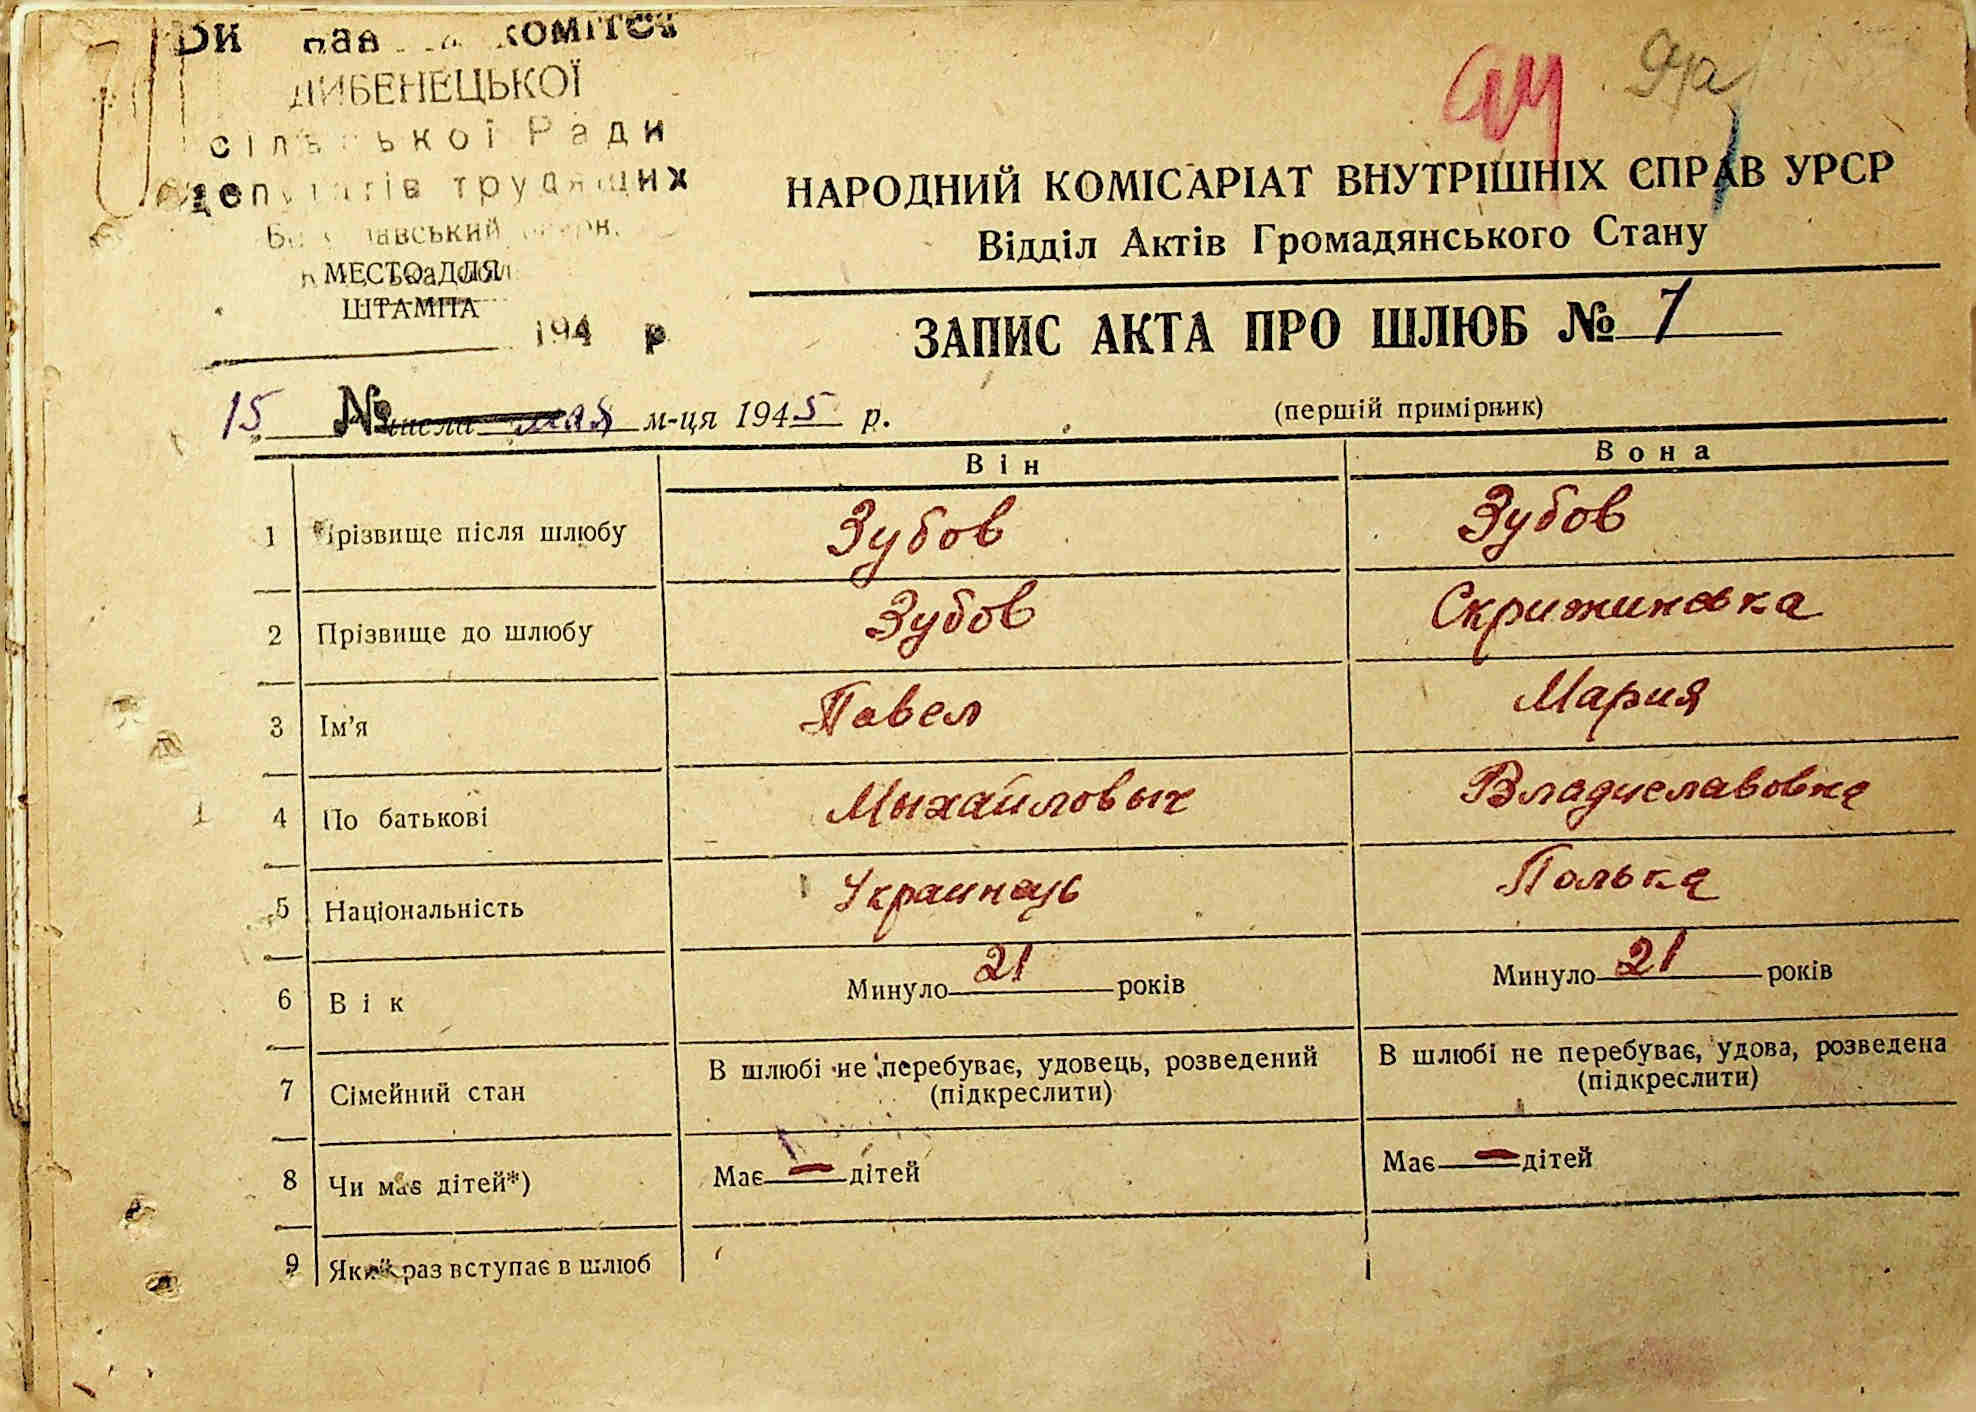 комітет
ДИБЕНЕЦЬКОЇ
сільської Ради
депутатів трудящих
МЕСТО ДЛЯ
ШТАМПА
194 р
94 94а
НАРОДНИЙ КОМІСАРІАТ ВНУТРІШНІХ СПРАВ УРСР
Відділ Актів Громадянського Стану
ЗАПИС АКТА ПРО ШЛЮБ № 7
15 № числа мая м-ця 1945 р.
(першій примірник)
Він Вона
1 Прізвище після шлюбу Зубов Зубов
2 Прізвище до шлюбу Зубов Скрижиневка
3 Ім'я Павел Мария
4 По батькові Мыхайловыч Владиславовна
5 Національність Украинець Полька
6 Вік Минуло 21 років Минуло 21 років
7 Сімейний стан В шлюбі не перебуває, удовець, розведений В шлюбі не перебуває, удова, розведена
(підкреслити) (підкреслити)
8 Чи має дітей*) Має — дітей Має — дітей
9 Який раз вступає в шлюб